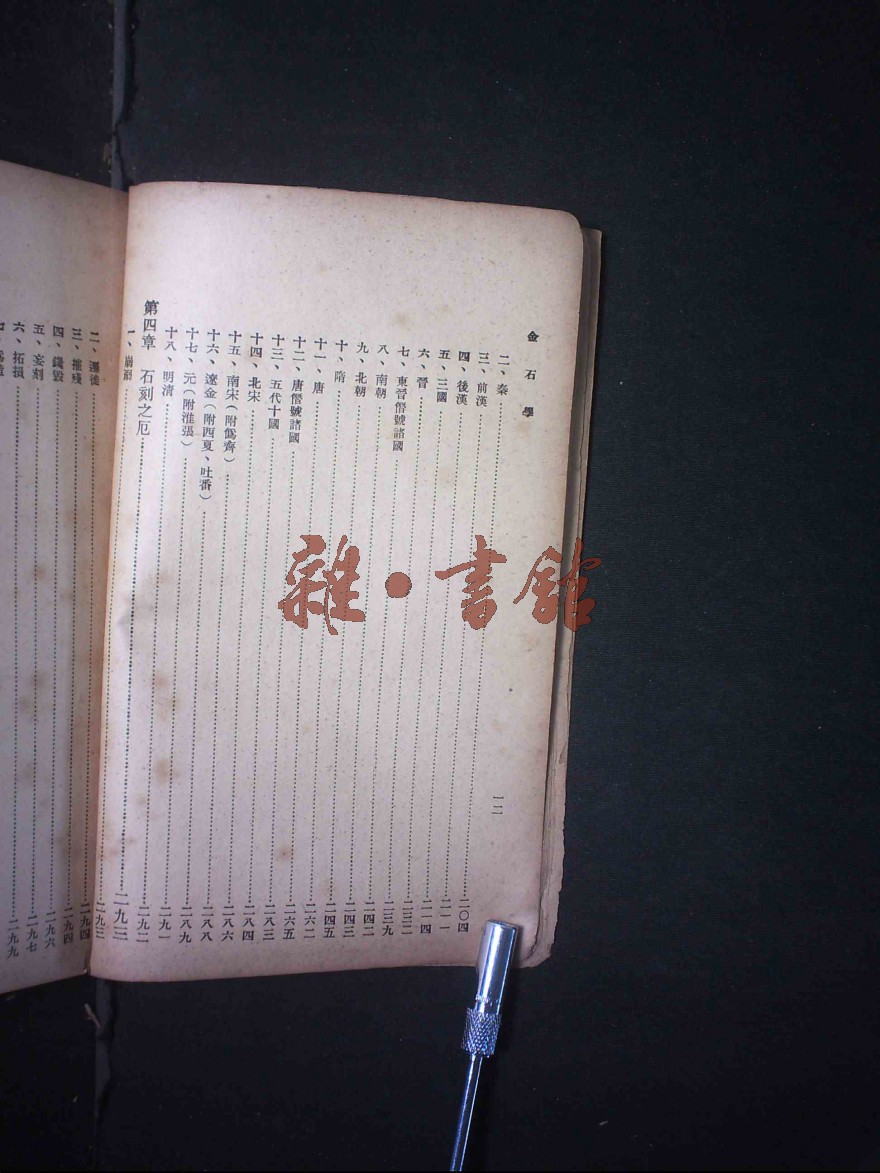 金石學
一二
二、秦……二〇四
三、前漢……二一一
四、後漢……二一四
五、三國……二三二
六、晉……二三九
七、東晉僭號諸國……二四二
八、南朝……二四三
九、北朝……二四五
十、隋……二六二
十一、唐……二六五
十二、唐僭號諸國……二八三
十三、五代十國……二八四
十四、北宋……二八六
十五、南宋(附僞齊)……二八八
十六、遼金(附西夏、吐番)……二八九
十七、元(附淮張)……二九一
十八、明清……二九二
第四章 石刻之厄……二九三
一、崩……二九三
二、遷徙……二九四
三、摧殘……二九四
四、毀……二九六
五、妄刻……二九七
六、拓損……二九九
雜·書館